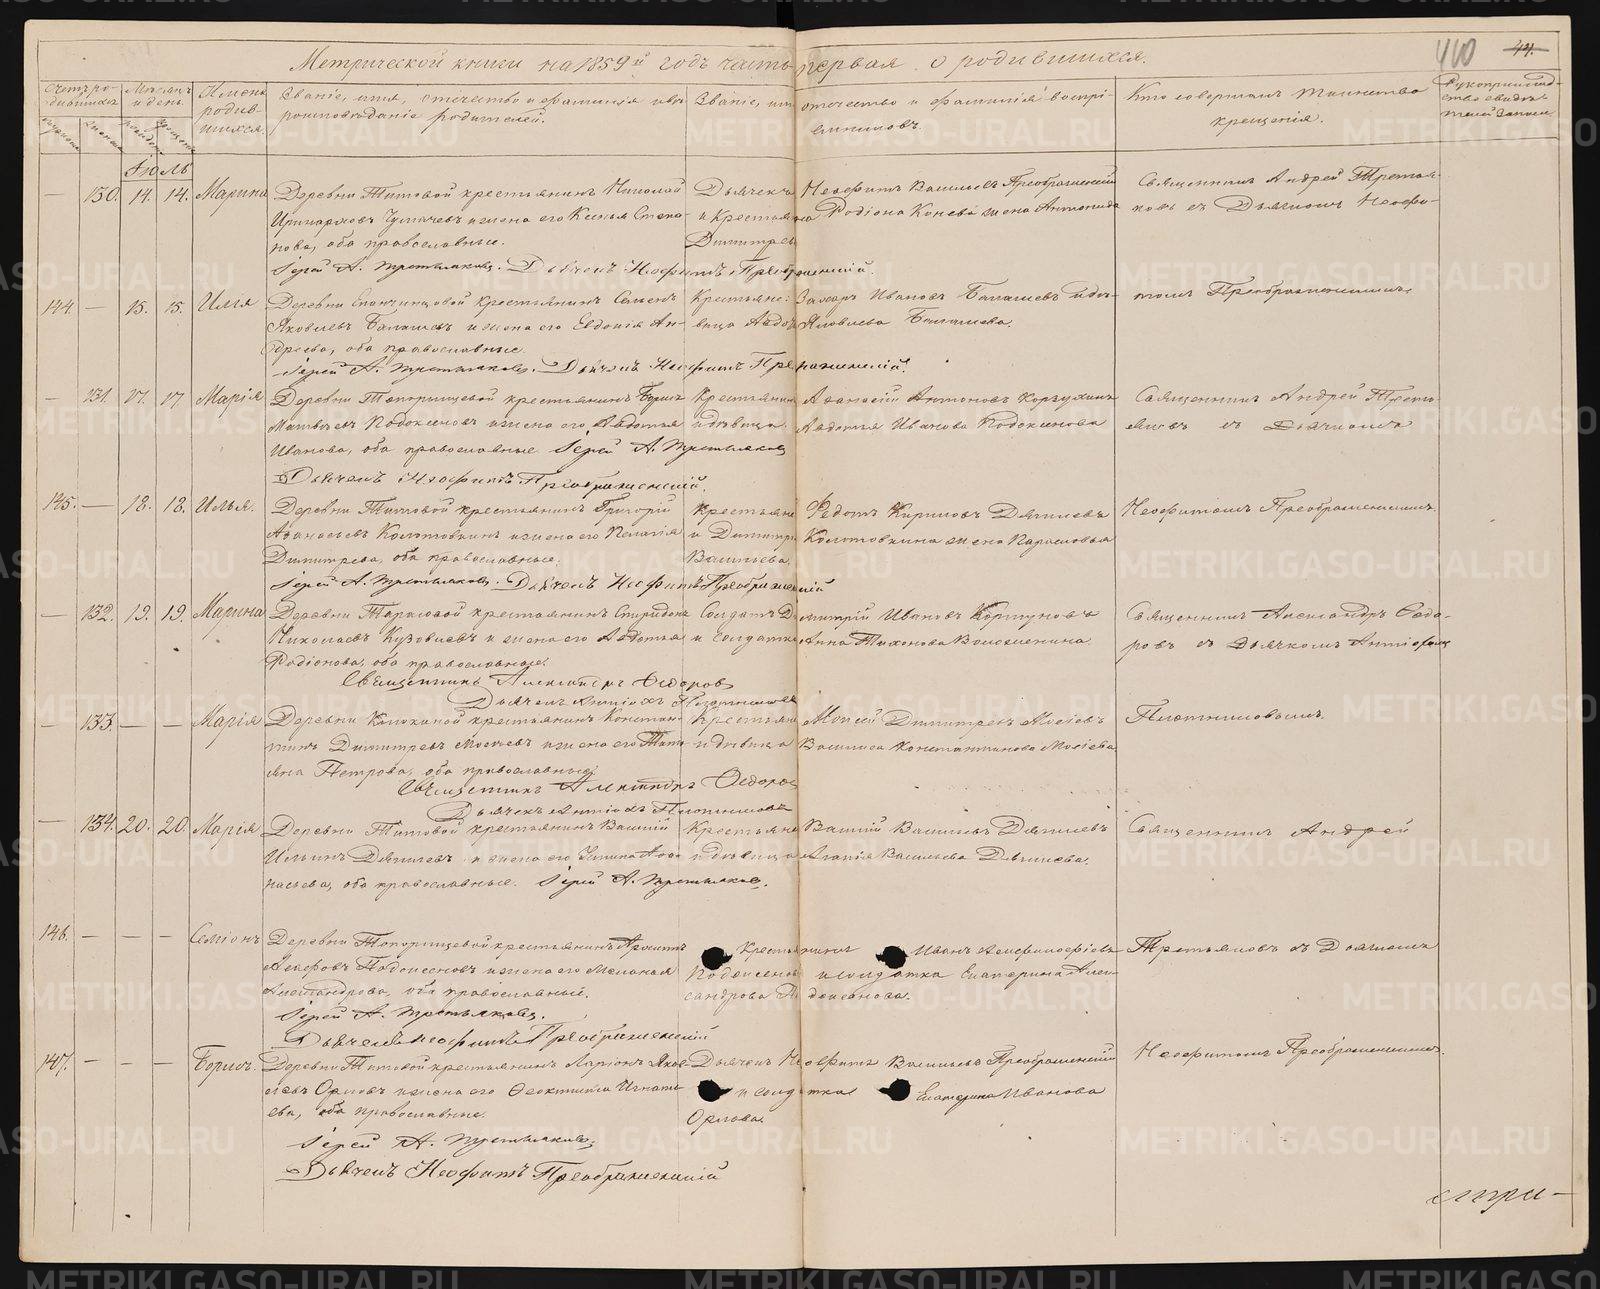 Метрической книги на 1859й годъ часть первая о родившихся.
440 44.
Счетъ родившихся
Мѣсяцъ и день
Имена родившихся
Званіе, имя, отечество и фамилія и какого вѣроисповѣданіе родителей.
Званіе, имя отечество и фамилія воспріемниковъ.
Кто совершалъ таинство крещенія.
Рукоприкладство свидѣтелей записи
Іюль
— 130. 14. 14. Марина
Деревни Титовой крестьянинъ Николай
и жена его Ксенья Степанова, оба православные.
Дьячекъ Неофитъ Васильевъ Преображенскій
и крестьянина Родіона Конева жена Антонида
Димитрева
Священникъ Андрей Третьяковъ съ Дьячкомъ Неофи-
Іерей А. Третьяковъ. Дьячекъ Неофитъ Преображенскій.
144. — 15. 15. Илія
крестьянинъ Семенъ
Яковлевъ Балашевъ и жена его Евдокія Андреева, оба православные.
Крестьяне: Захаръ Ивановъ Балашевъ и дѣвица Авдотья Яковлева Балашева.
томъ Преображенскимъ.
Іерей А. Третьяковъ. Дьячекъ Неофитъ Преображенскій.
— 131. 17. 17 Марія
Деревни Топорищевой крестьянинъ Борисъ
Матвѣевъ Подоксеновъ и жена его Авдотья
Иванова, оба православные Іерей А. Третьяковъ
Крестьянинъ Аѳанасій Антоновъ
и дѣвица Авдотья Иванова Подоксенова
Священникъ Андрей Третьяковъ съ Дьячкомъ
Дьячекъ Неофитъ Преображенскій.
145. — 18. 18. Илья.
Деревни Титовой крестьянинъ Григорій
Аѳанасьевъ Колотовкинъ и жена его Пелагія
Димитрева, оба православные.
Крестьяне Федотъ Кириловъ Данилевъ
и Димитрія Колотовкина жена Парасковья
Васильева.
Неофитомъ Преображенскимъ.
Іерей А. Третьяковъ. Дьячекъ Неофитъ Преображенскій
— 132. 19. 19. Марина
Деревни Тарасовой крестьянинъ Спиридонъ
Николаевъ Кузовлевъ и жена его Авдотья
Родіонова, оба православные.
Солдатъ Димитрій Ивановъ Коршунова
и солдатка Анна Тихонова Волокитина.
Священникъ Александръ Федоровъ съ Дьячкомъ Антіохомъ
Священникъ Александръ Федоровъ
Дьячекъ Антіохъ Плотниковъ
— 133. — — Марія
Деревни Клюкиной крестьянинъ Константинъ Димитревъ Мосіевъ и жена его Татьяна Петрова, оба православные.
Крестьяне Моисей Димитревъ Мосіевъ
и дѣвица Васильса Константинова Мосіева
Плотниковымъ.
Священникъ Александръ Федоровъ
Дьячекъ Антіохъ Плотниковъ
— 134. 20. 20. Марія
Деревни Титовой крестьянинъ Василій
Ильинъ Данилевъ и жена его
оба православные. Іерей А. Третьяковъ.
Крестьяне Василій Васильевъ Данилевъ
и дѣвица Агапія Васильева Данилева.
Священникъ Андрей
146. — — — Семіонъ
Деревни Топорищевой крестьянинъ
Подоксеновъ и жена его Меланья
Александрова, оба православные.
Крестьянинъ Иванъ
Подоксеновъ и солдатка Екатерина Александрова Подоксенова.
Третьяковъ съ Дьячкомъ
Іерей А. Третьяковъ.
Дьячекъ Неофитъ Преображенскій
147. — — — Борисъ.
Деревни Титовой крестьянинъ Ларіонъ Яковлевъ Орловъ и жена его Феоктиста Игнатьева, оба православные.
Дьячекъ Неофитъ Васильевъ Преображенскій
и солдатка Екатерина Иванова
Орлова.
Неофитомъ Преображенскимъ.
Іерей А. Третьяковъ.
Дьячекъ Неофитъ Преображенскій
METRIKI.GASO-URAL.RU